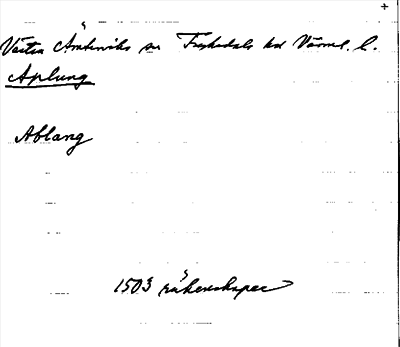 Västra Ämterviks sn Fryksdals hd Värml. l.
Aplung
Ablang
1503 räkenskaper